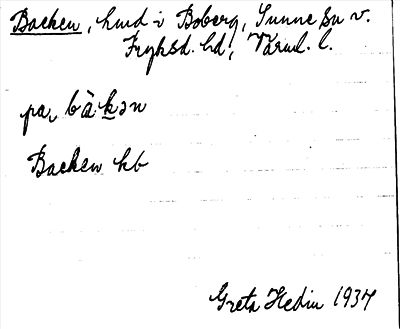 Backen, hmd i Boberg, Sunne sn v.
Fryksd. hd, Värml. l.
pa, bàkən
Backen hb
Greta Hedin 1937